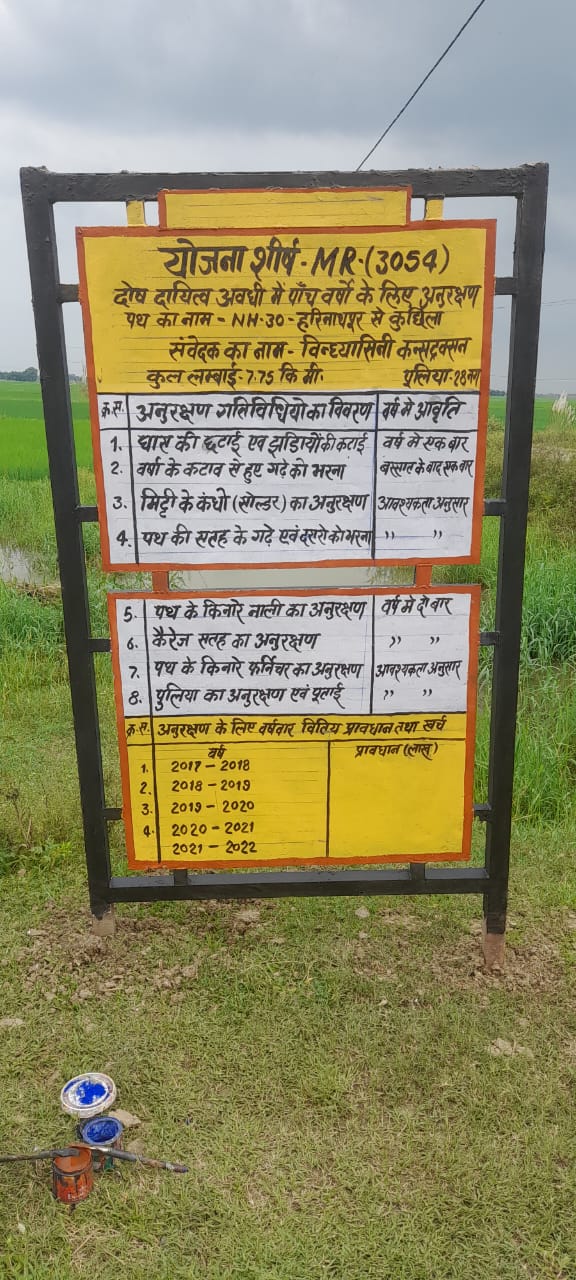 योजना शीर्ष - MR-(3054)
दोष दायित्व अवधी में पाँच वर्षो के लिए अनुरक्षण
पथ का नाम - NH-30 - हरिनाथपुर से कुर्थिला
संवेदक का नाम - विन्ध्यासिनी कन्सट्रक्सन
कुल लम्बाई - 7.75 कि मी. पुलिया - 28 नग
क्र.स. अनुरक्षण गतिविधियो का विवरण वर्ष मे आवृति
1. घास की छटाई एवं झाड़ियों की कटाई वर्ष मे एक बार
2. वर्षा के कटाव से हुए गढ़े को भरना बरसात के बाद एक बार
3. मिट्टी के कंधो (सोल्डर) का अनुरक्षण आवश्यकता अनुसार
4. पथ की सतह के गढ़े एवं दरारो को भरना ,, ,,
5. पथ के किनारे नाली का अनुरक्षण वर्ष मे दो बार
6. कैरेज सतह का अनुरक्षण ,, ,,
7. पथ के किनारे फर्निचर का अनुरक्षण आवश्यकता अनुसार
8. पुलिया का अनुरक्षण एवं पूताई ,, ,,
क्र.स. अनुरक्षण के लिए वर्षवार वितिय प्रावधान तथा खर्च
वर्ष प्रावधान (लाख)
1. 2017 - 2018
2. 2018 - 2019
3. 2019 - 2020
4. 2020 - 2021
2021 - 2022